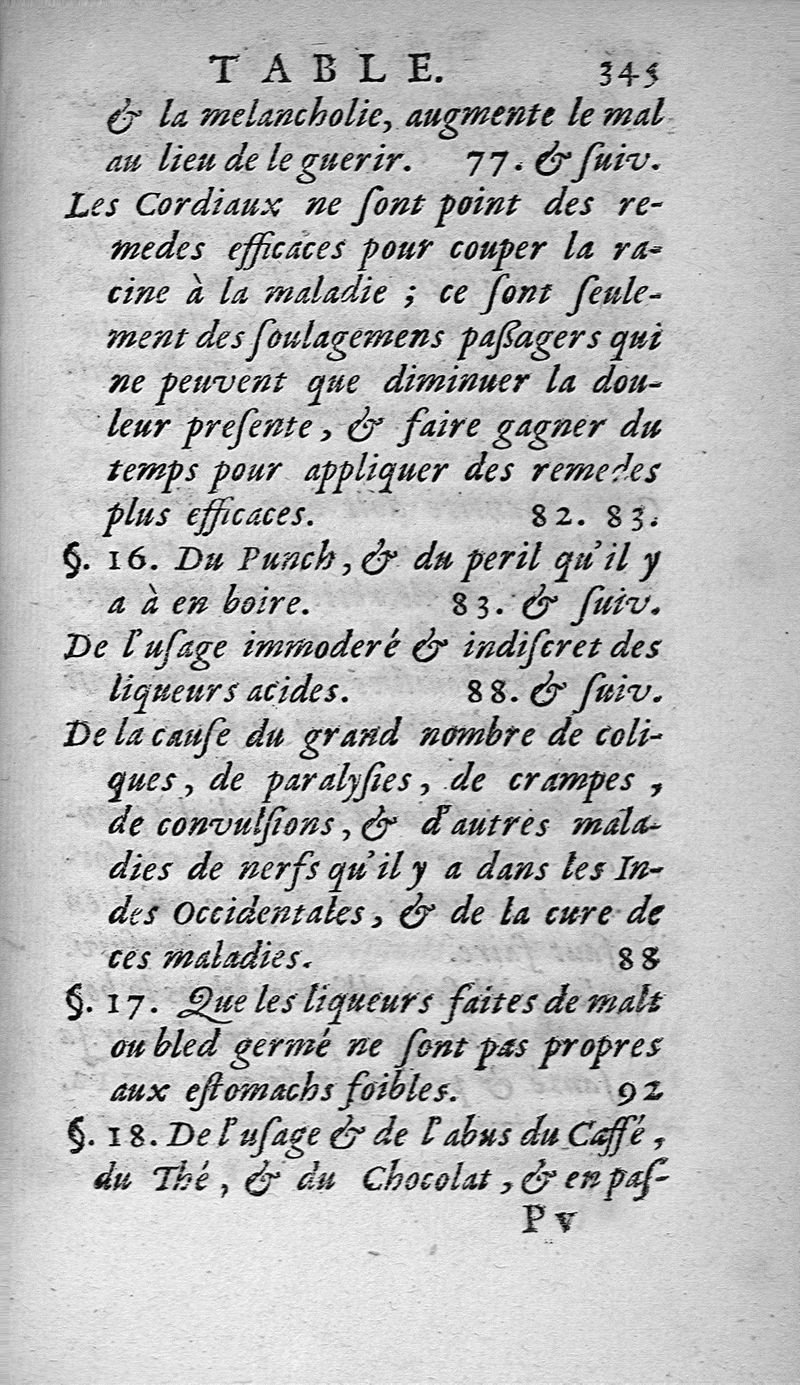 TABLE. 345
& la melancholie, augmente le mal
au lieu de le guerir. 77. & ſuiv.
Les Cordiaux ne ſont point des re-
medes efficaces pour couper la ra-
cine à la maladie ; ce ſont ſeule-
ment des ſoulagemens paßagers qui
ne peuvent que diminuer la dou-
leur preſente, & faire gagner du
temps pour appliquer des remedes
plus efficaces. 82. 83.
§. 16. Du Punch, & du peril qu'il y
a à en boire. 83. & ſuiv.
De l'uſage immoderé & indiſcret des
liqueurs acides. 88. & ſuiv.
De la cauſe du grand nombre de coli-
ques, de paralyſies, de crampes,
de convulſions, & d'autres mala-
dies de nerfs qu'il y a dans les In-
des Occidentales, & de la cure de
ces maladies. 88
§. 17. Que les liqueurs faites de malt
ou bled germé ne ſont pas propres
aux eſtomachs foibles. 92
§. 18. De l'uſage & de l'abus du Caffé,
du Thé, & du Chocolat, & en paſ-
P v